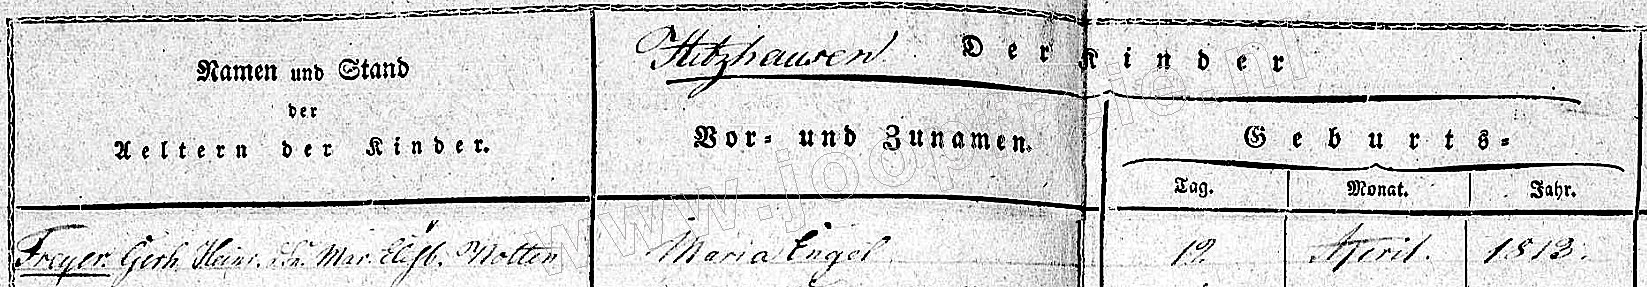 Hitzhausen Der Kinder
Namen und Stand
der
Aeltern der Kinder.
Vor- und Zunamen.
Geburts-
Tag. Monat. Jahr.
Freyer. Gerh. Heinr. u. Mar. Elisb. Notten
Maria Engel 12 April. 1813.